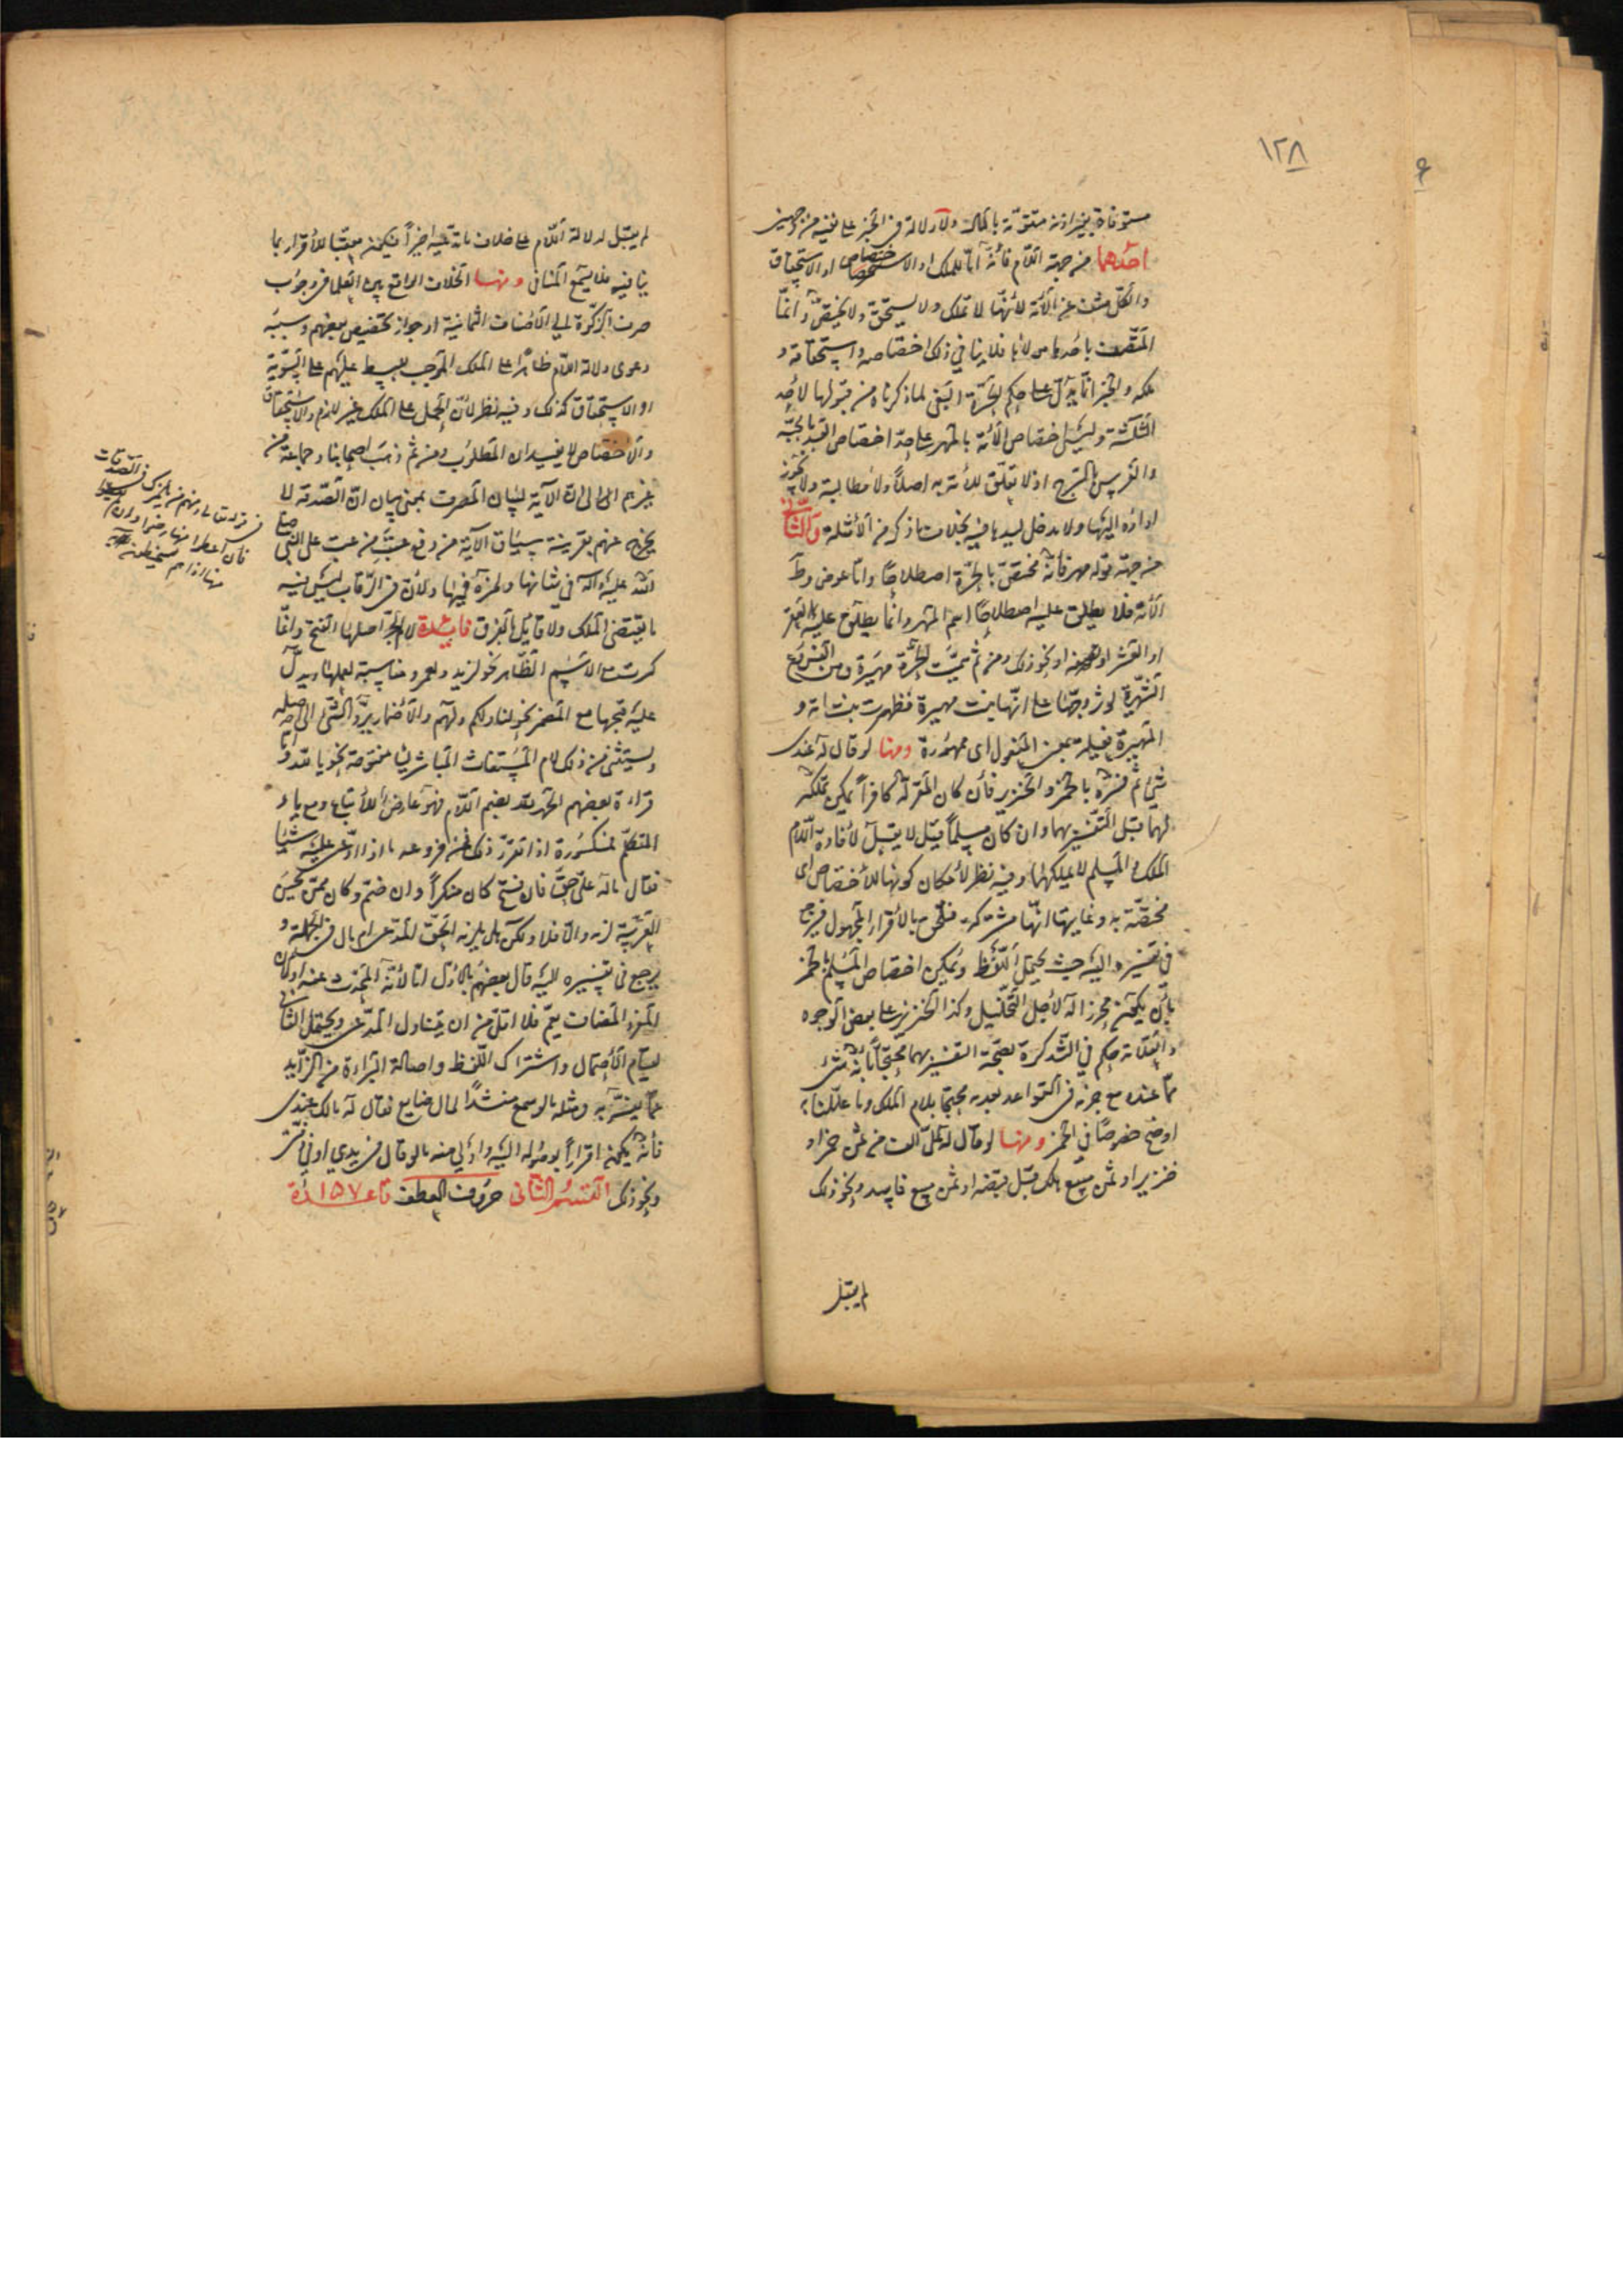 ١٢٨
مستوفاة بغير اذنه متقومة بالمال ولا دلالة في الخبر على نفيه من وجهين
احدهما من جهة اللام فانه اما للملك او الاختصاص او الاستحقاق
والكل منتف عن الأمة لأنها لا تملك ولا يستحق ولا يختص وانما
المتصف باحدها مولاها فلا ينافي ذلك اختصاصه واستحقاقه و
ملكه والخبر انما يدل على حكم الحرة البغي لما ذكرناه من قبولها لأحد
الثلثة وليس اختصاص الأمة بالمهر على حد اختصاص القيد بالجبة
والفرس بالسرج اذ لا تعلق للأمة به اصلاً ولا مطالبة ولا يجوز
اداؤه اليها ولا يدخل ليدها فيه بخلاف ما ذكر من الأمثلة والثاني
من جهة قوله مهر فانه مختص بالحرة اصطلاحا واما عوض وطى
الأمة فلا يطلق عليه اصطلاحاً اسم المهر وانما يطلق عليه العقر
او العشر او نصفه او نحو ذلك ومن ثم سميت الحرة مهيرة ومن الفروع
الشهيرة لو زوجها على انها بنت مهيرة فظهرت بنت امة و
المهيرة فعيلة بمعنى المفعول اى ممهورة ومنها لو قال له عندى
شئ ثم فسره بالخمر والخنزير فان كان المقر له كافراً يمكن تملكه
لهما قبل التفسير بهما وان كان مسلماً قيل لا يقبل لأفادة اللام
الملك والمسلم لا يملكهما وفيه نظر لأمكان كونها للأختصاص اى
مختصة به وغايتها انها مشتركة فتلحق بالأقرار المجهول فيرجع
في تفسيره اليه حيث يحتمل اللفظ ويمكن اختصاص المسلم بالخمر
بأن يكون محرزا له لأجل التخليل وكذا الخنزير على بعض الوجوه
والعلامة حكم في التذكرة بصحة التفسير بهما محتجاً بانه شئ
مما عنده مع جزمه في القواعد بعدمه محتجا بلام الملك وما عللناه
اوضح خصوصاً في الخمر ومنها لو قال له علي الف من ثمن خمر او
خنزير او ثمن مبيع هلك قبل قبضه او ثمن مبيع فاسد ونحو ذلك
لم يقبل
لم يقبل لدلالة اللام على خلاف ما تعقبه اخيراً فيكون معقبا للأقرار بما
ينافيه فلا يسمع المنافى ومنها الخلاف الواقع بين العلما في وجوب
صرف الزكوة الى الأصناف الثمانية او جواز تخصيص بعضهم وسببه
دعوى دلالة اللام ظاهرا على الملك الموجب للبسط عليهم على التسوية
او الاستحقاق كذلك وفيه نظر لأن الحمل على الملك غير لازم والاستحقاق
والأختصاص لا يفيدان المطلوب ومن ثم ذهب اصحابنا وجماعة من
غيرهم الى ان الآية لبيان المصرف بمعنى بيان ان الصدقة لا
يخرج عنهم بقرينة سياق الآية من وقوع عتب من عتب على النبي صلى
الله عليه وآله في شانها ولمزه فيها ولأن في الرقاب ليس فيه
ما يقتضى الملك ولا قائل بالفرق فائدة لام الجر اصلها الفتح وانما
كسرت مع الاسم الظاهر نحو لزيد ولعمرو مناسبة لعملها ويدل
عليه فتحها مع المضمر نحو لنا ولكم ولهم والأضمار يرد الشئ الى اصله
ويستثنى من ذلك لام المستغاث المباشر ليا مفتوحة نحو يا لله واما
قراءة بعضهم الحمد لله بضم اللام فهو عارض للأتباع ومع ياء
المتكلم مكسورة اذا تقرر ذلك فمن فروعه ما اذا ادعى عليه شيئا
فقال ماله علي حق فان فتح كان منكراً وان ضم وكان ممن يحسن
العربية لزمه والا فلا ولكن هل يلزمه الحق المدعى ام مال في الجملة و
يرجع في تفسيره اليه قال بعضهم بالأول اما لأنه المتحدث عنه او لأن
المفرد المضاف يعم فلا اقل من ان يتناول المدعى ويحتمل الثاني
لقيام الأحتمال واشتراك اللفظ واصالة البراءة من الزايد
عما يفسر به ومثله ما لو سمع منشداً لمال ضايع فقال له مالك عندى
فأنه يكون اقراراً بوصوله اليه واولى منه ما لو قال في يدي او في ذمتي
ونحو ذلك القسم الثاني حروف العطف قاعدة ١٥٧
في قوله تعالى ومنهم من يلمزك في الصدقات
فان اعطوا منها رضوا وان لم يعطوا
منها اذا هم يسخطون الآية